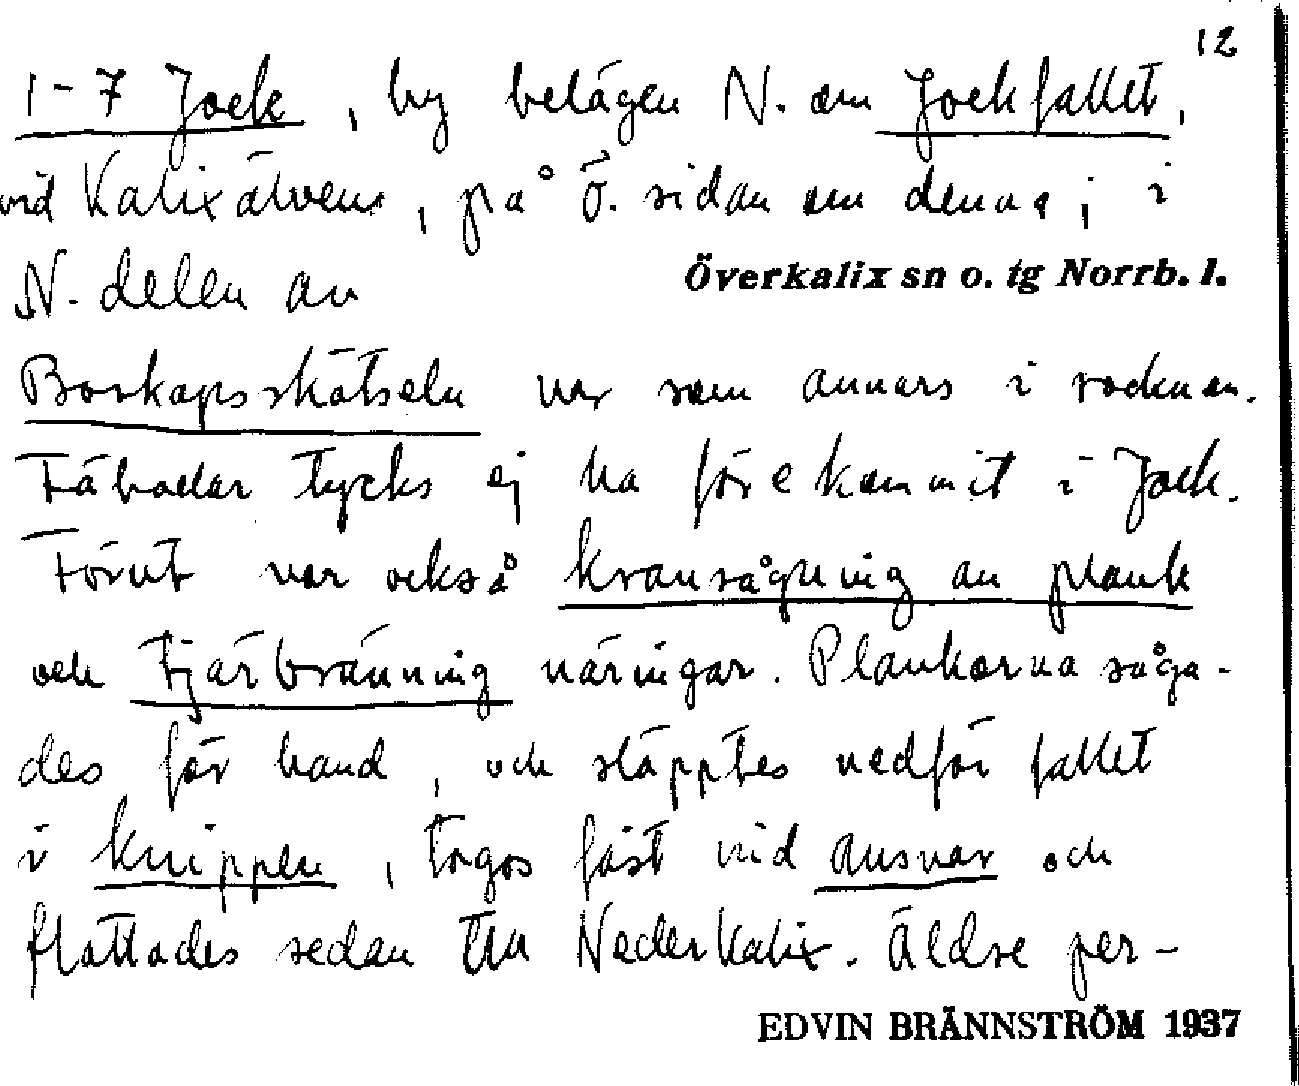 12
1-7 Jock, by belägen N. om Jockfallet,
vid Kalixälven, på ö. sidan om denna; i
N. delen av
Överkalix sn o. tg Norrb. l.
Boskapsskötseln var som annars i socknen.
Fäbodar tycks ej ha förekommit i Jock.
Förut var också kransågning av plank
och tjärbränning näringar. Plankorna såga-
des för hand, och släpptes nedför fallet
i knippen, togos fast vid Ansvar och
flottades sedan till Nederkalix. Äldre per-
EDVIN BRÄNNSTRÖM 1937